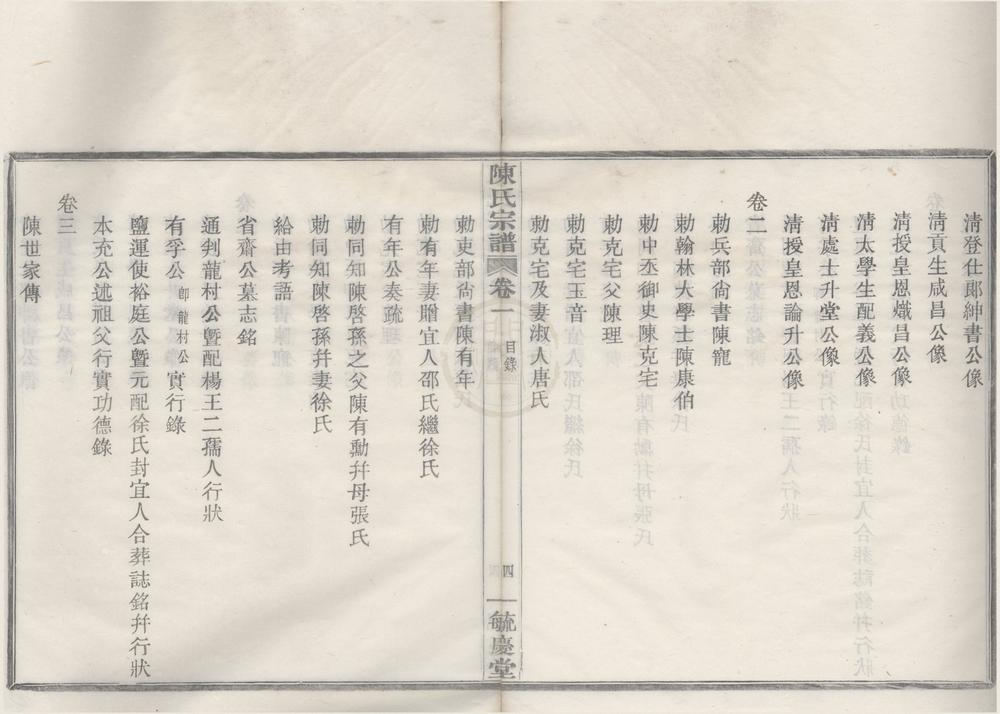 清登仕郎紳書公像
清貢生咸昌公像
清授皇恩熾昌公像
清太學生配義公像
清處士升堂公像
清授皇恩論升公像
卷二
勅兵部尙書陳寵
勅翰林大學士陳康伯
勅中丞御史陳克宅
勅克宅父陳理
勅克宅玉音
勅克宅及妻淑人唐氏
陳氏宗譜 卷一 目錄 四 毓慶堂
勅吏部尙書陳有年
勅有年妻贈宜人邵氏繼徐氏
有年公奏疏
勅同知陳啓孫之父陳有勳幷母張氏
勅同知陳啓孫幷妻徐氏
給由考語
省齋公墓志銘
通判龍村公曁配楊王二孺人行狀
有孚公卽龍村公實行錄
鹽運使裕庭公曁元配徐氏封宜人合葬誌銘幷行狀
本充公述祖父行實功德錄
卷三
陳世家傳